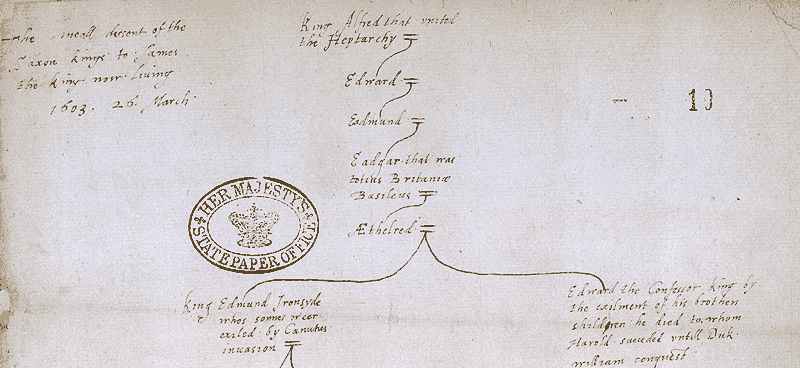 The lineall descent of the
Saxon kings to James
the king now living
1603. 26. March.
King Alfred that united
the Heptarchy
Edward
Eadmund
10
Eadgar that was
totius Britaniæ
Basileus
Æthelred
HER MAJESTYS
STATE PAPER OFFICE
King Edmund Ironsyde
whos sonnes weer
exiled by Canutus
invasion
Edward the Confessor king by
the exilment of his brothers
children he died to whom
Harold succeded untill Duk
William conquest